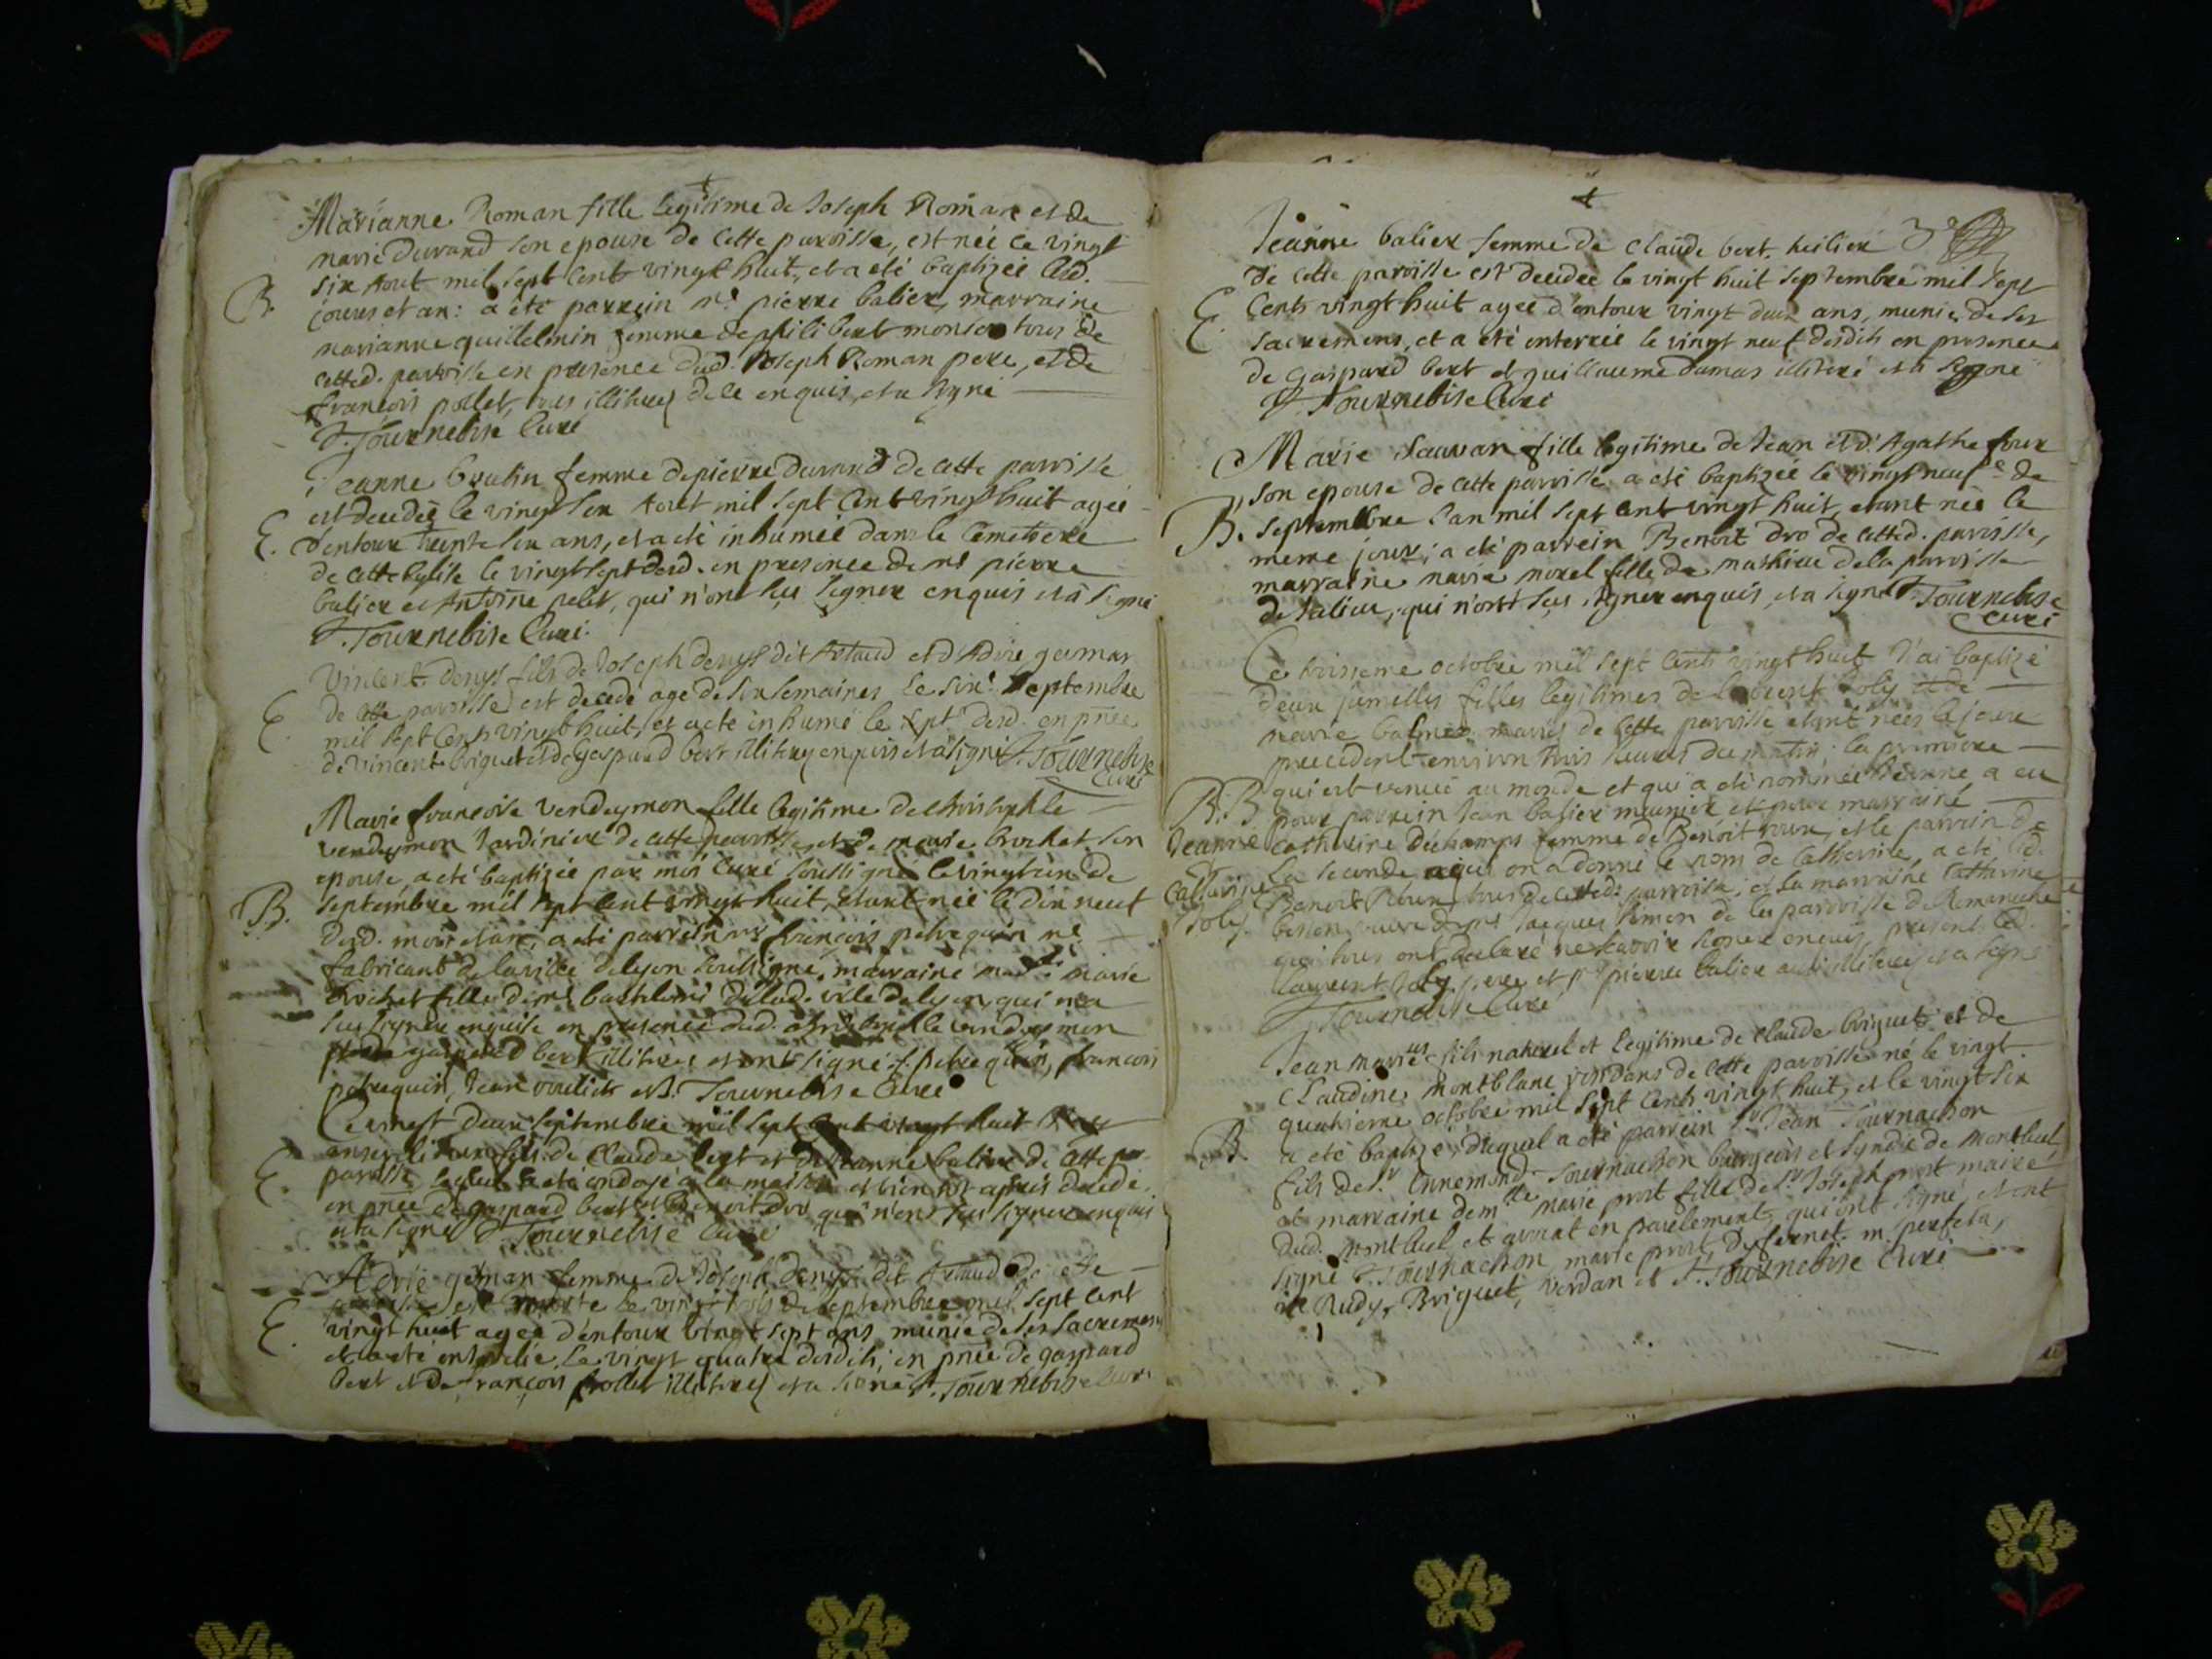 Marianne Roman fille legitime de Joseph Roman et de
marie durand son epouse de cette paroisse, est née ce vingt
six Aout mil sept cent vingt huit, et a eté baptizée led.
B. jours et an: a été parrein pierre balier, marraine
marianne guillelmin femme de philibert tous de
cetted. paroisse en presence dud. Joseph Roman pere, et de
françois pollet, tous illiteres de ce enquis, et a signé
F. Tournebise Curé
Jeanne boulin femme de pierre durand de cette paroisse
est decedée le vingt six Aout mil sept cent vingt huit agée
E. d'entour trente six ans, et a eté inhumée dans le Cemetiere
de cette Eglise le vingt sept desd. en presence de pierre
balier et Antoine pelet, qui n'ont sçu signer enquis et a signé
F. Tournebise Curé.
Vincent denys fils de Joseph denys dit Artaud et d'Adrie german
E. de cette paroisse est decedé agé de six semaines le six.e Septembre
mil sept cent vingt huit, et a eté inhumé le sept desd. en pñce
de vincent briguet et de gaspard bert illiteres enquis et a signé F. Tournebise
Curé
Marie françoise vendeymon fille legitime de christophle
vendeymon Jardinier de cette paroisse, et de marie brochet son
epouse, a eté baptizée par moi Curé soussigné le vingt un de
B. septembre mil sept cent vingt huit, etant née le dix neuf
desd. mois et an, a eté parrein françois pelrequin
fabricant de la ville de lyon soussigné, marraine marie
brochet fille de barthelemi de lad. ville de lyon qui n'a
sçu signer enquise en presence dud. christophle vendeymon
et de gaspard bert illiteres et ont signé f. petrequin, françois
petrequin, Jean et F. Tournebise Curé
Ce vingt deux septembre mil sept cent vingt huit
enseveli un fils de Claude bert et de Jeanne balier de cette par
E. paroisse lequel a eté ondoyé a la maison et bien tot apres decedé,
en pñce de gaspard bert et Benoit dro qui n'ont sçu signer enquis
et a signé F. Tournebise Curé
Adrie german femme de Joseph denys dit Artaud de cette
paroisse est morte le vingt trois de septembre mil sept cent
E. vingt huit agée d'entour vingt sept ans munie de ses sacremens
et a eté ensevelie le vingt quatre desdits, en pñce de gaspard
bert et de françois pollet illiteres et a signé F. Tournebise Curé
Jeanne balier femme de Claude bert
de cette paroisse est decedée le vingt huit septembre mil sept
E. Cents vingt huit agée d'entour vingt deux ans, munie de ses
sacremens, et a eté enterrée le vingt neuf desdits en presence
de gaspard bert et guillaume dumas illiteré et a signé
F. Tournebise Curé
Marie Sauvan fille legitime de Jean et d'Agathe
son epouse de cette paroisse a eté baptizée le vingt neuf.e de
B. septembre l'an mil sept cent vingt huit, etant née le
meme jour; a eté parrein Benoit dro de cetted. paroisse,
marraine marie morel fille de mathieu de la paroisse
de qui n'ont sçu signer enquis, et a signé F. Tournebise
Curé
Ce troisieme octobre mil sept cents vingt huit J'ai baptizé
deux jumelles filles legitimes de laurent Joly et de
marie balmed mariés de cette paroisse etant nées le jour
precedent environ trois heures du matin; la premiere
B. B. qui est venue au monde et qui a eté nommée Jeanne a eu
pour parrein Jean balier meunier et pour marraine
Jeanne Catherine dechamps femme de Benoit roux, et le parrein de
Et la seconde a qui on a donné le nom de Catherine, a eté led.
Catherine Benoit roux tous de cetted. paroisse, et la marraine Catherine
Joly. besson veuve Jacques simon de la paroisse de Romaneche
qui tous ont declaré ne sçavoir signer enquis, present led.
Laurent Joly pere et pierre balier aussi illiteres et a signé
F. Tournebise Curé
Jean marie fils naturel et legitime de Claude briguet et de
Claudine montblanc de cette paroisse né le vingt
quatrieme octobre mil sept cents vingt huit, et le vingt six
B. a eté baptizé, duquel a eté parrein Sr Jean Tournachon
fils de Sr Ennemond Tournachon bourgeois et syndic de montluel
et marraine demlle marie prost fille de Sr Joseph prost maire
dud. montluel et avocat en parlement, qui ont signé, et ont
signé J. Tournachon marie prost,
Briguet, verdan et F. Tournebise Curé